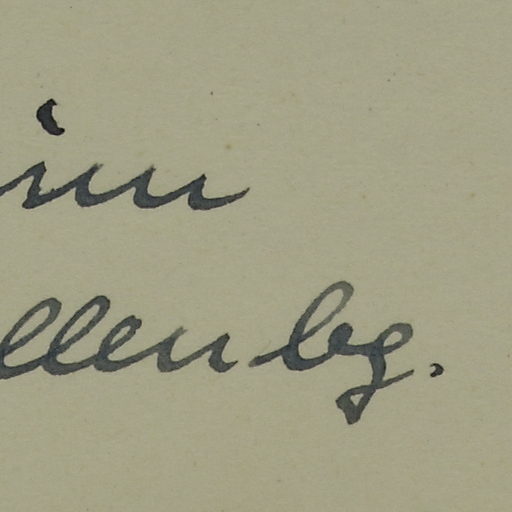 im
llenbg.